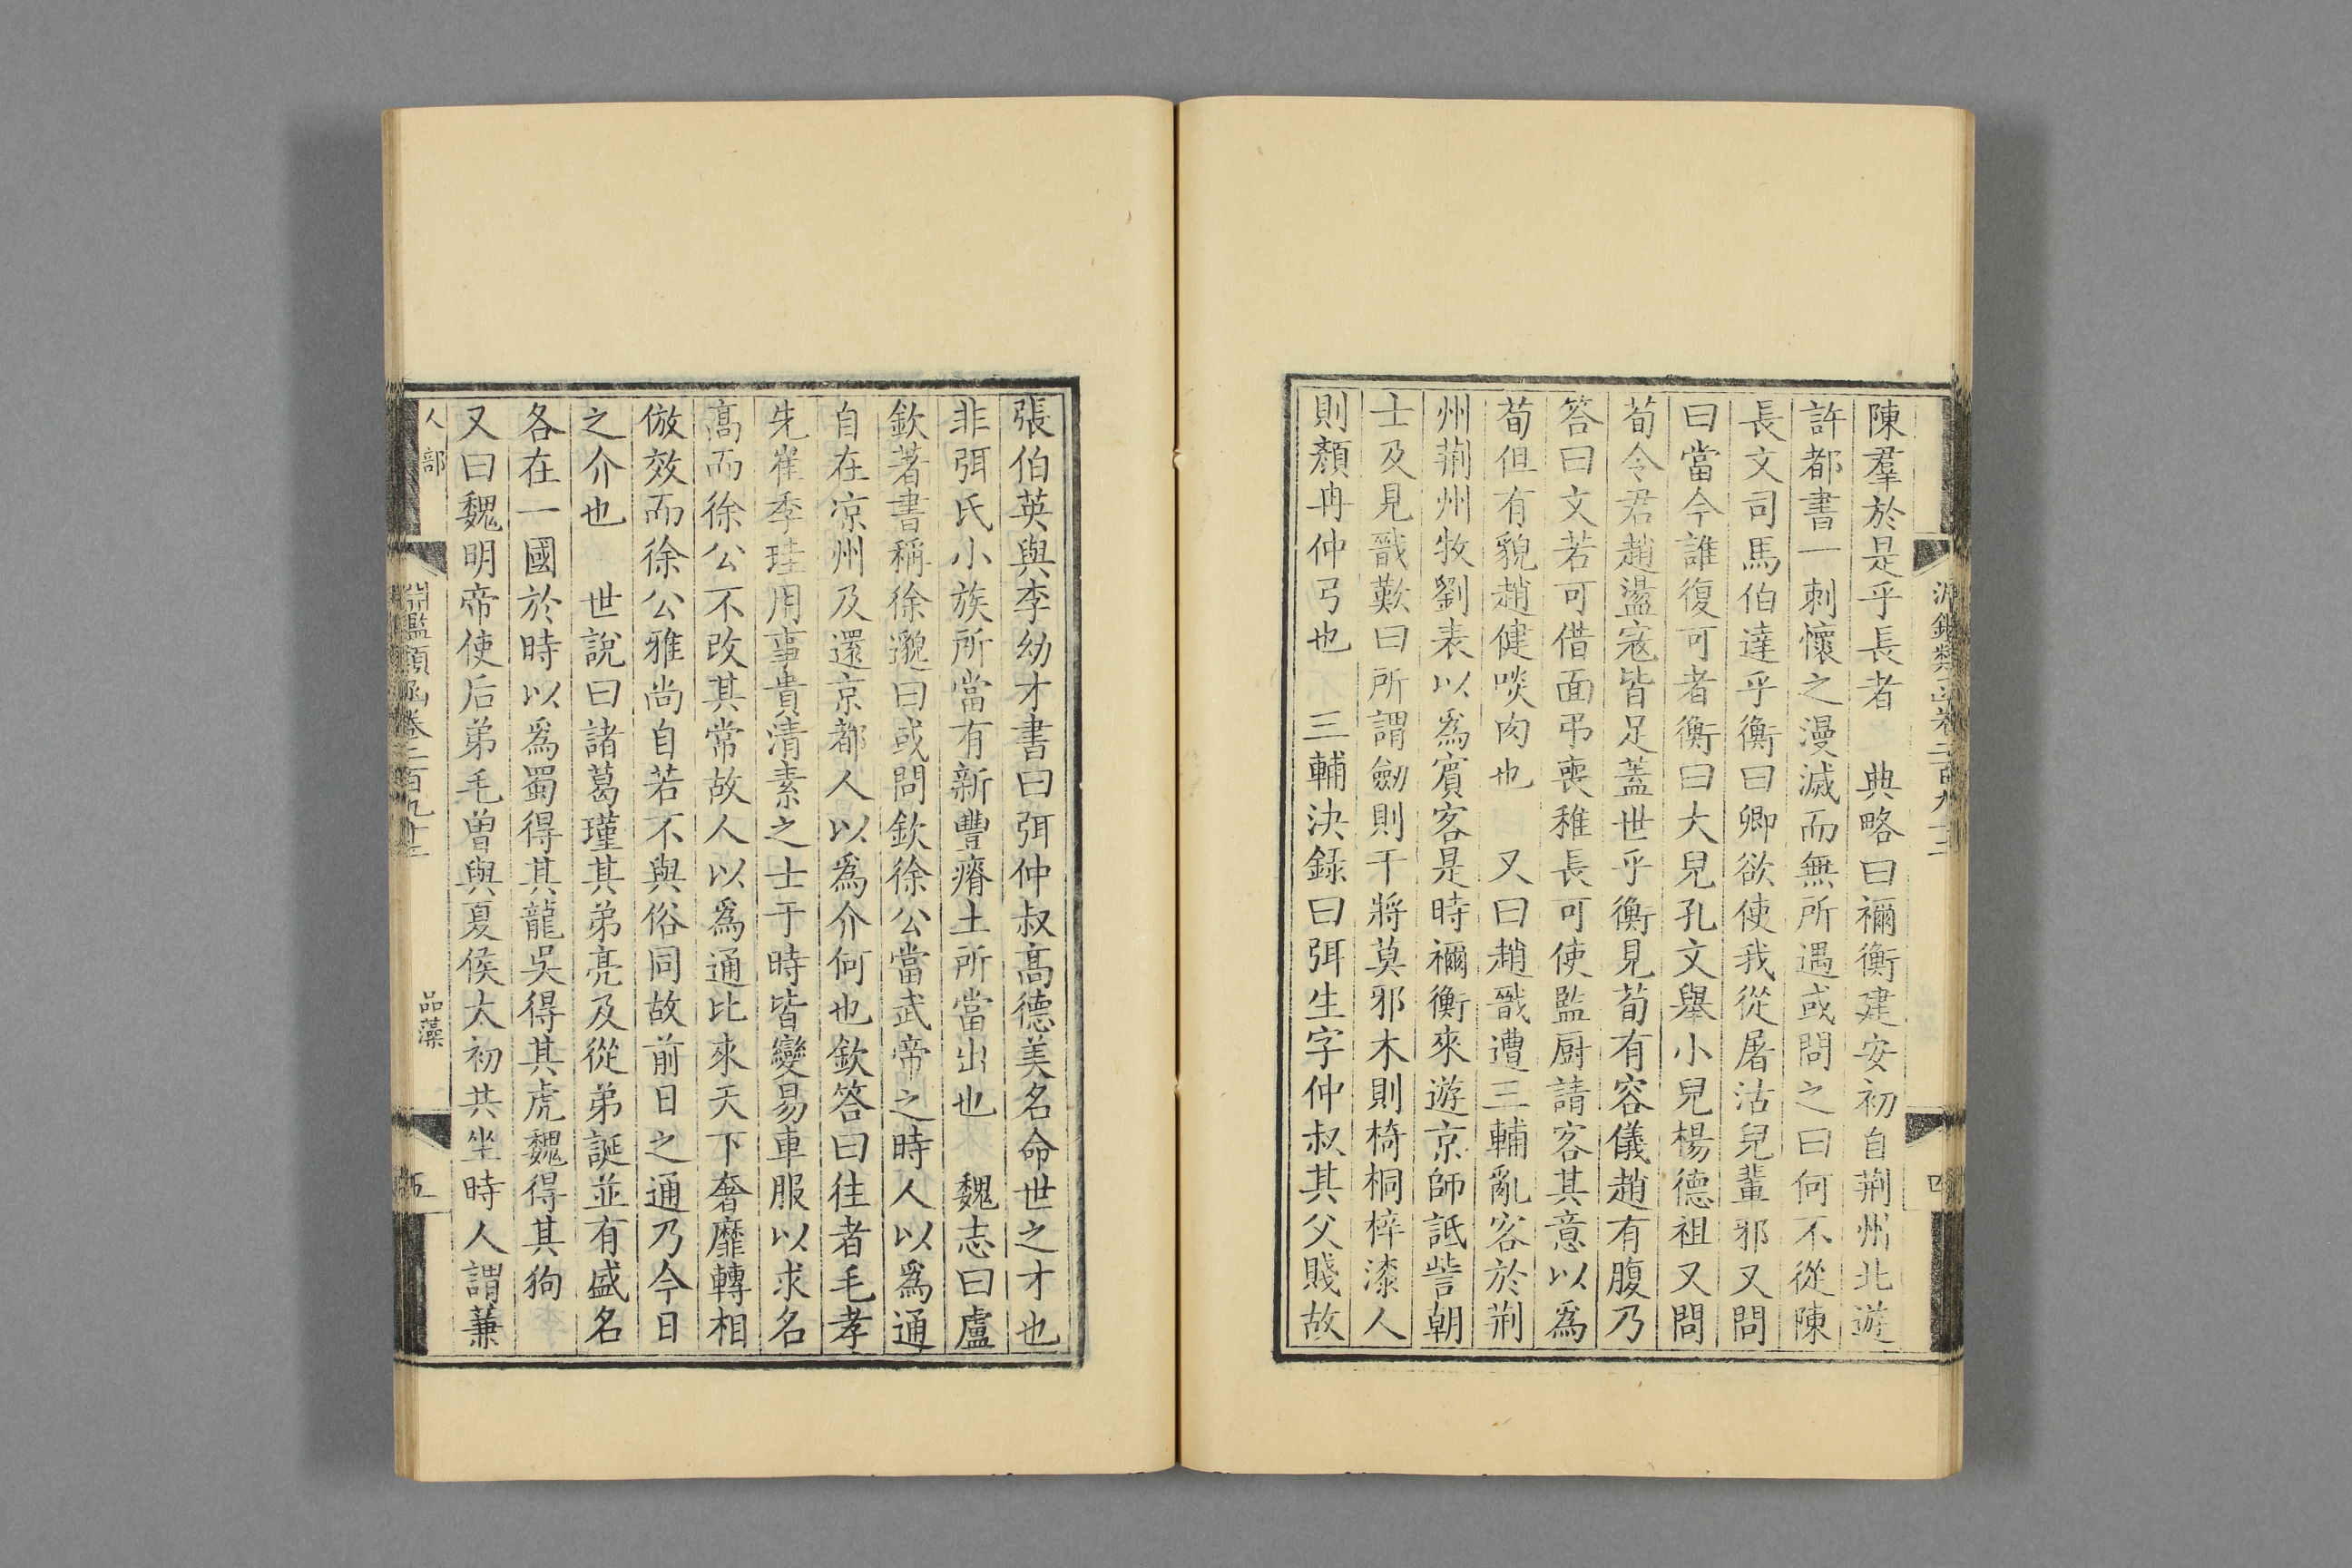 陳羣於是乎長者　典略曰禰衡建安初自荆州北遊
許都書一刺懷之漫滅而無所遇或問之曰何不從陳
長文司馬伯達乎衡曰卿欲使我從屠沽兒輩邪又問
曰當今誰復可者衡曰大兒孔文舉小兒楊德祖又問
荀令君趙盪寇皆足蓋世乎衡見荀有容儀趙有腹乃
答曰文若可借面弔喪稚長可使監厨請客其意以爲
荀但有貌趙健啖肉也　又曰趙戩遭三輔亂客於荆
州荆州牧劉表以爲賓客是時禰衡來遊京師詆訾朝
士及見戩歎曰所謂劒則干將莫邪木則椅桐梓漆人
則顏冉仲弓也　三輔決錄曰弭生字仲叔其父賤故
張伯英與李幼才書曰弭仲叔高德美名命世之才也
非弭氏小族所當有新豐瘠土所當出也　魏志曰盧
欽著書稱徐邈曰或問欽徐公當武帝之時人以爲通
自在凉州及還京都人以爲介何也欽答曰往者毛孝
先崔季珪用事貴清素之士于時皆變易車服以求名
高而徐公不改其常故人以爲通比來天下奢靡轉相
倣效而徐公雅尚自若不與俗同故前日之通乃今日
之介也　世說曰諸葛瑾其弟亮及從弟誕並有盛名
各在一國於時以爲蜀得其龍吳得其虎魏得其狗
又曰魏明帝使后弟毛曾與夏侯太初共坐時人謂蒹
人部
淵鑑類函卷二百九十三
品藻
五